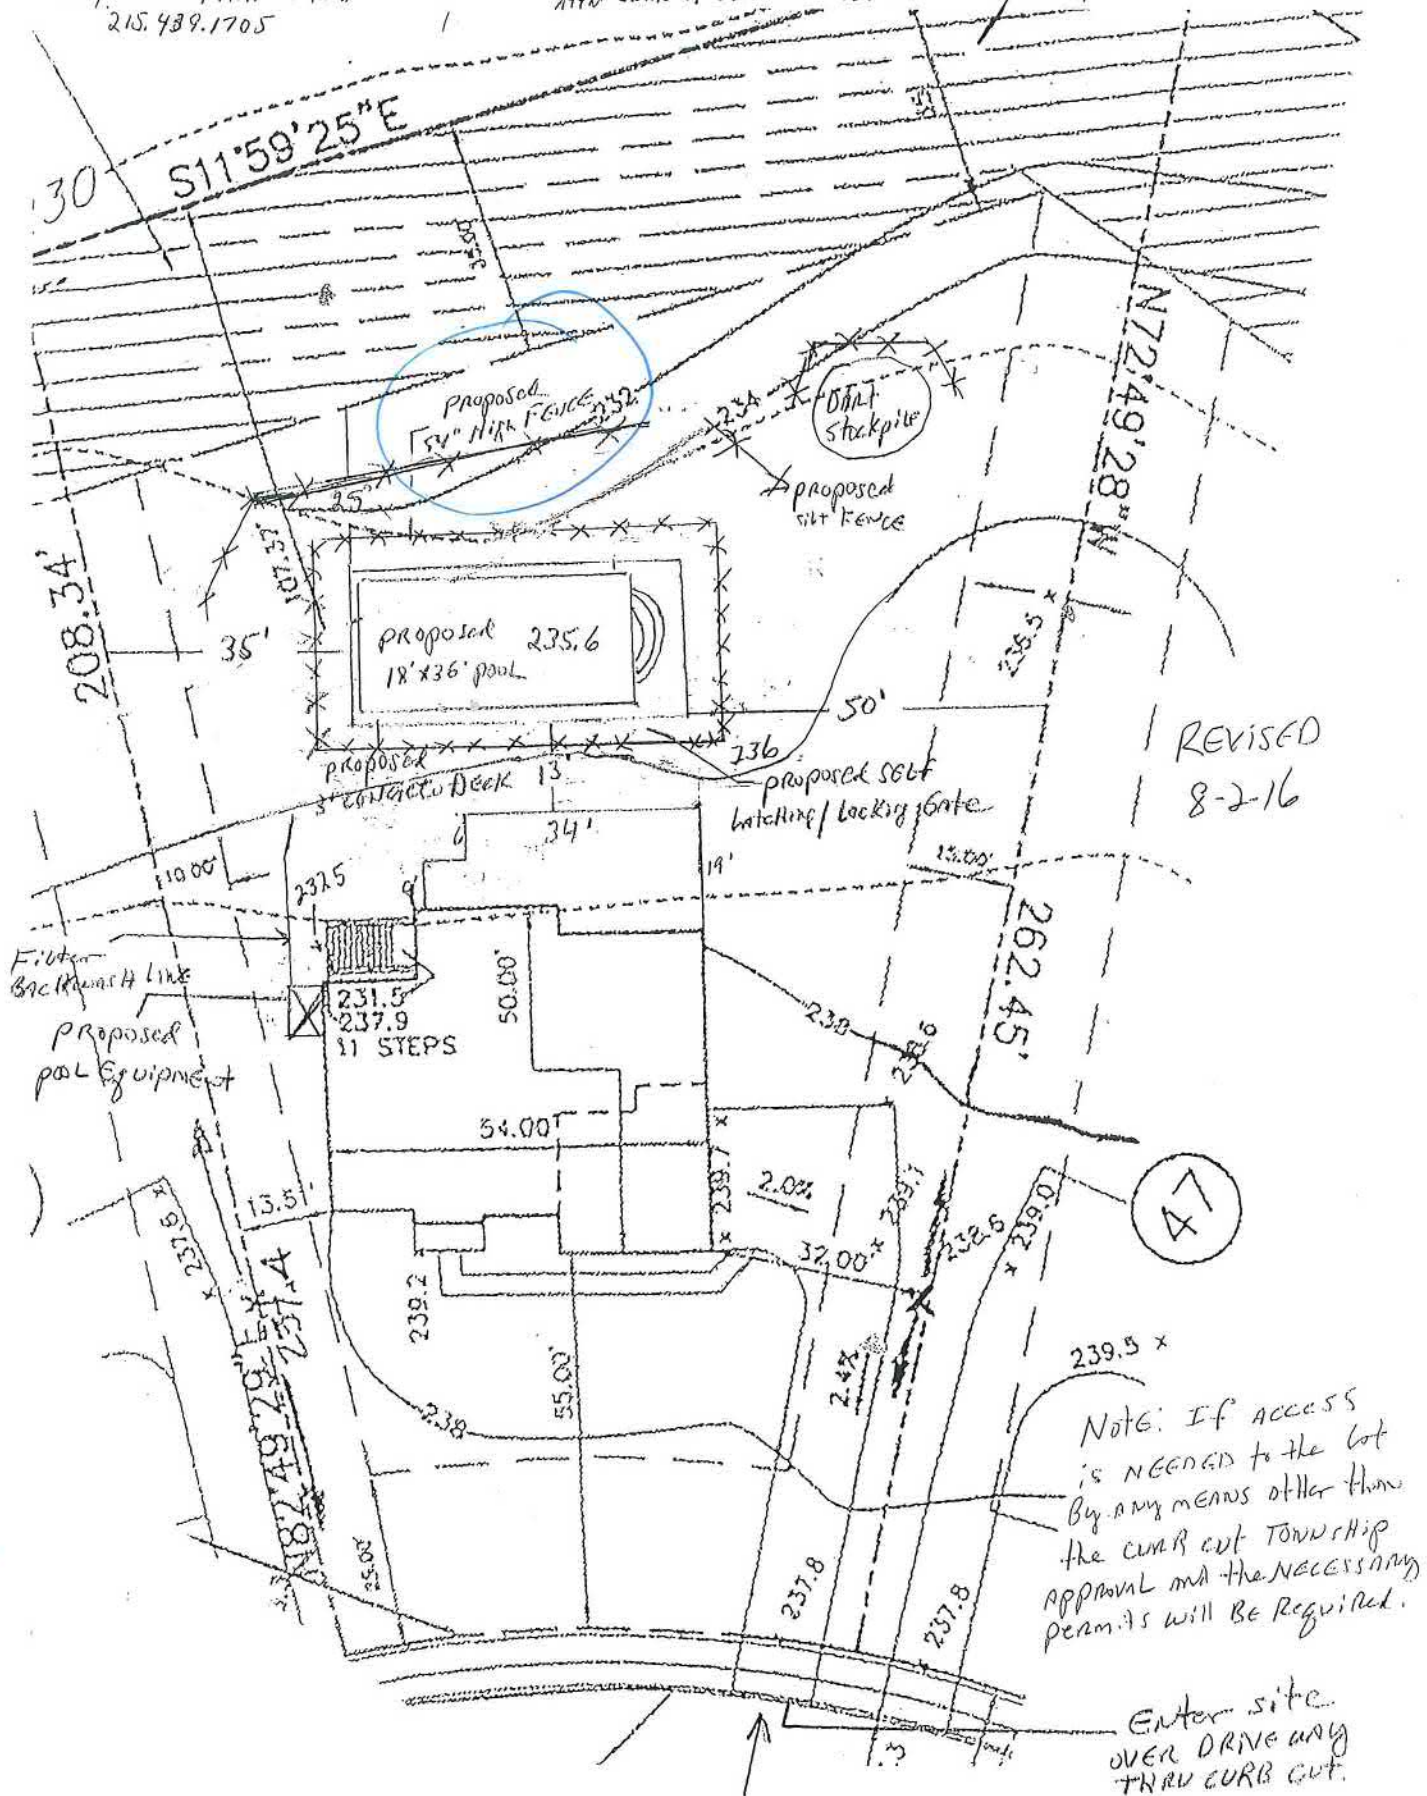 215.439.1705
S11°59'25"E
:30
35.00
Proposed
54" High FENCE
232
234
DIRT
stockpile
proposed
silt FENCE
25'
107.37'
N72°49'28"W
208.34'
35'
PROPOSED 235.6
18'x36' pool
235.5
50'
236
REVISED
8-2-16
PROPOSED
3' CONCRETE DECK
13'
proposed SELF
Latching/Locking Gate
6'
34'
19'
9'
10.00'
15.00'
232.5
262.45'
Filter
BACKWASH LINE
PROPOSED
pool Equipment
231.5
237.9
11 STEPS
50.00'
238
238.6
54.00'
47
239.7
2.0%
239.7
13.51'
237.6
237.4
32.00'
238.6
239.0
239.2
N82°49'29"E
55.00'
2.4%
239.5
238
25.00'
237.8
237.8
NOTE: If ACCESS
is NEEDED to the Lot
By ANY MEANS other than
the CURB cut TOWNSHIP
APPROVAL and the NECESSARY
permits will BE Required.
Enter site
OVER DRIVEWAY
THRU CURB CUT.